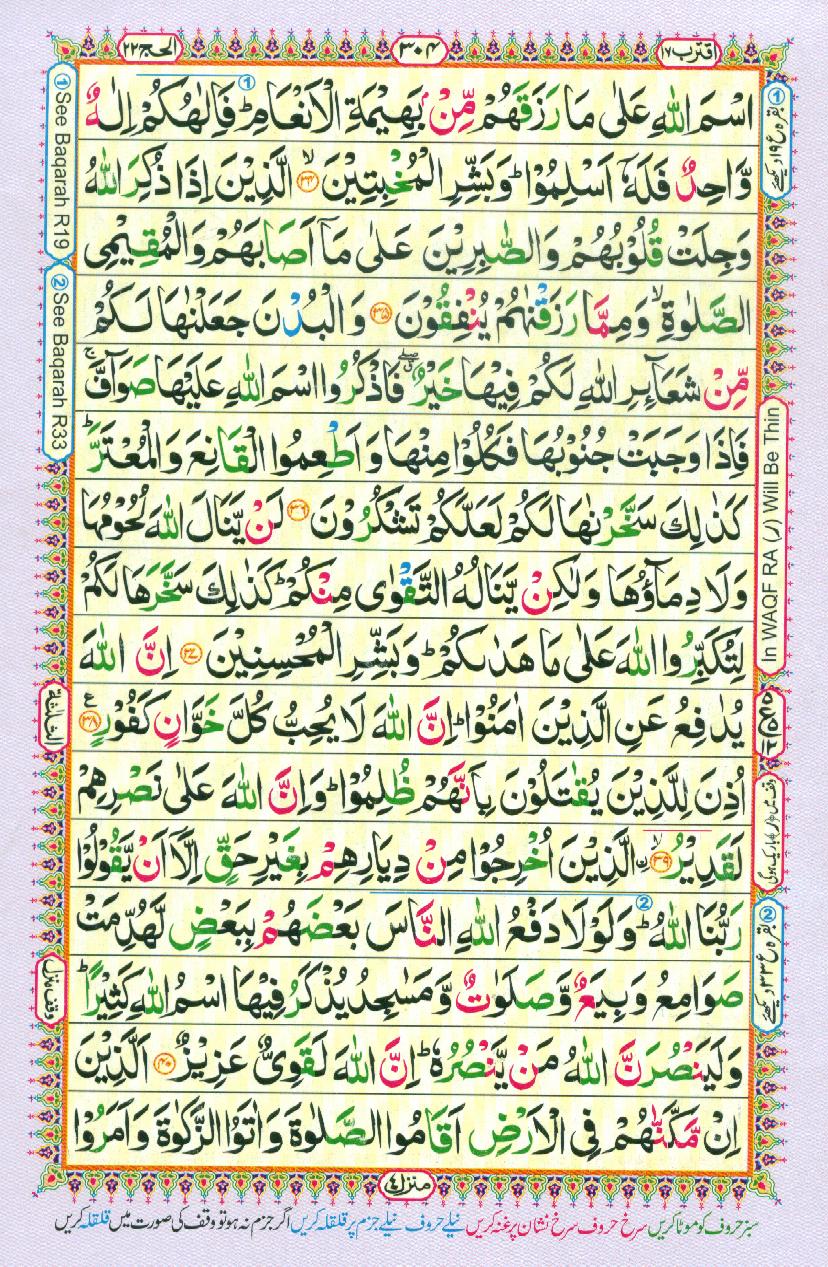 اقترب ١٧
٣٠٤
الحج ٢٢
اسْمَ اللّٰهِ عَلٰى مَا رَزَقَهُمْ مِّنْۢ بَهِيْمَةِ الْاَنْعَامِ ؕ فَاِلٰهُكُمْ اِلٰهٌ
وَّاحِدٌ فَلَهٗۤ اَسْلِمُوْا ؕ وَبَشِّرِ الْمُخْبِتِيْنَ ۙ﴿۳۴﴾ الَّذِيْنَ اِذَا ذُكِرَ اللّٰهُ
وَجِلَتْ قُلُوْبُهُمْ وَالصّٰبِرِيْنَ عَلٰى مَاۤ اَصَابَهُمْ وَالْمُقِيْمِى
الصَّلٰوةِ ۙ وَمِمَّا رَزَقْنٰهُمْ يُنْفِقُوْنَ ﴿۳۵﴾ وَالْبُدْنَ جَعَلْنٰهَا لَكُمْ
مِّنْ شَعَآئِرِ اللّٰهِ لَكُمْ فِيْهَا خَيْرٌ ۖ فَاذْكُرُوا اسْمَ اللّٰهِ عَلَيْهَا صَوَآفَّ ۚ
فَاِذَا وَجَبَتْ جُنُوْبُهَا فَكُلُوْا مِنْهَا وَاَطْعِمُوا الْقَانِعَ وَالْمُعْتَرَّ ؕ
كَذٰلِكَ سَخَّرْنٰهَا لَكُمْ لَعَلَّكُمْ تَشْكُرُوْنَ ﴿۳۶﴾ لَنْ يَّنَالَ اللّٰهَ لُحُوْمُهَا
وَلَا دِمَآؤُهَا وَلٰكِنْ يَّنَالُهُ التَّقْوٰى مِنْكُمْ ؕ كَذٰلِكَ سَخَّرَهَا لَكُمْ
لِتُكَبِّرُوا اللّٰهَ عَلٰى مَا هَدٰىكُمْ ؕ وَبَشِّرِ الْمُحْسِنِيْنَ ﴿۳۷﴾ اِنَّ اللّٰهَ
يُدٰفِعُ عَنِ الَّذِيْنَ اٰمَنُوْا ؕ اِنَّ اللّٰهَ لَا يُحِبُّ كُلَّ خَوَّانٍ كَفُوْرٍ ﴿۳۸﴾ ع
اُذِنَ لِلَّذِيْنَ يُقٰتَلُوْنَ بِاَنَّهُمْ ظُلِمُوْا ؕ وَاِنَّ اللّٰهَ عَلٰى نَصْرِهِمْ
لَقَدِيْرُ ۙ﴿۳۹﴾ ۨالَّذِيْنَ اُخْرِجُوْا مِنْ دِيَارِهِمْ بِغَيْرِ حَقٍّ اِلَّاۤ اَنْ يَّقُوْلُوْا
رَبُّنَا اللّٰهُ ؕ وَلَوْلَا دَفْعُ اللّٰهِ النَّاسَ بَعْضَهُمْ بِبَعْضٍ لَّهُدِّمَتْ
صَوَامِعُ وَبِيَعٌ وَّصَلَوٰتٌ وَّمَسٰجِدُ يُذْكَرُ فِيْهَا اسْمُ اللّٰهِ كَثِيْرًا ؕ
وَلَيَنْصُرَنَّ اللّٰهُ مَنْ يَّنْصُرُهٗ ؕ اِنَّ اللّٰهَ لَقَوِىٌّ عَزِيْزٌ ﴿۴۰﴾ اَلَّذِيْنَ
اِنْ مَّكَّنّٰهُمْ فِى الْاَرْضِ اَقَامُوا الصَّلٰوةَ وَاٰتَوُا الزَّكٰوةَ وَاَمَرُوْا
① See Baqarah R19
② See Baqarah R33
الثلاثة
وقف منزل
① بقرہ ع ۱۹ دیکھئے
In WAQF RA (ر) Will Be Thin
وقف میں (ر) باریک ہوگی
② بقرہ ع ۳۳ دیکھئے
منزل ٤
سبز حروف کو موٹا کریں سرخ حروف سرخ نشان پر غنہ کریں نیلے حروف نیلے جزم پر قلقلہ کریں اگر جزم نہ ہو تو وقف کی صورت میں قلقلہ کریں